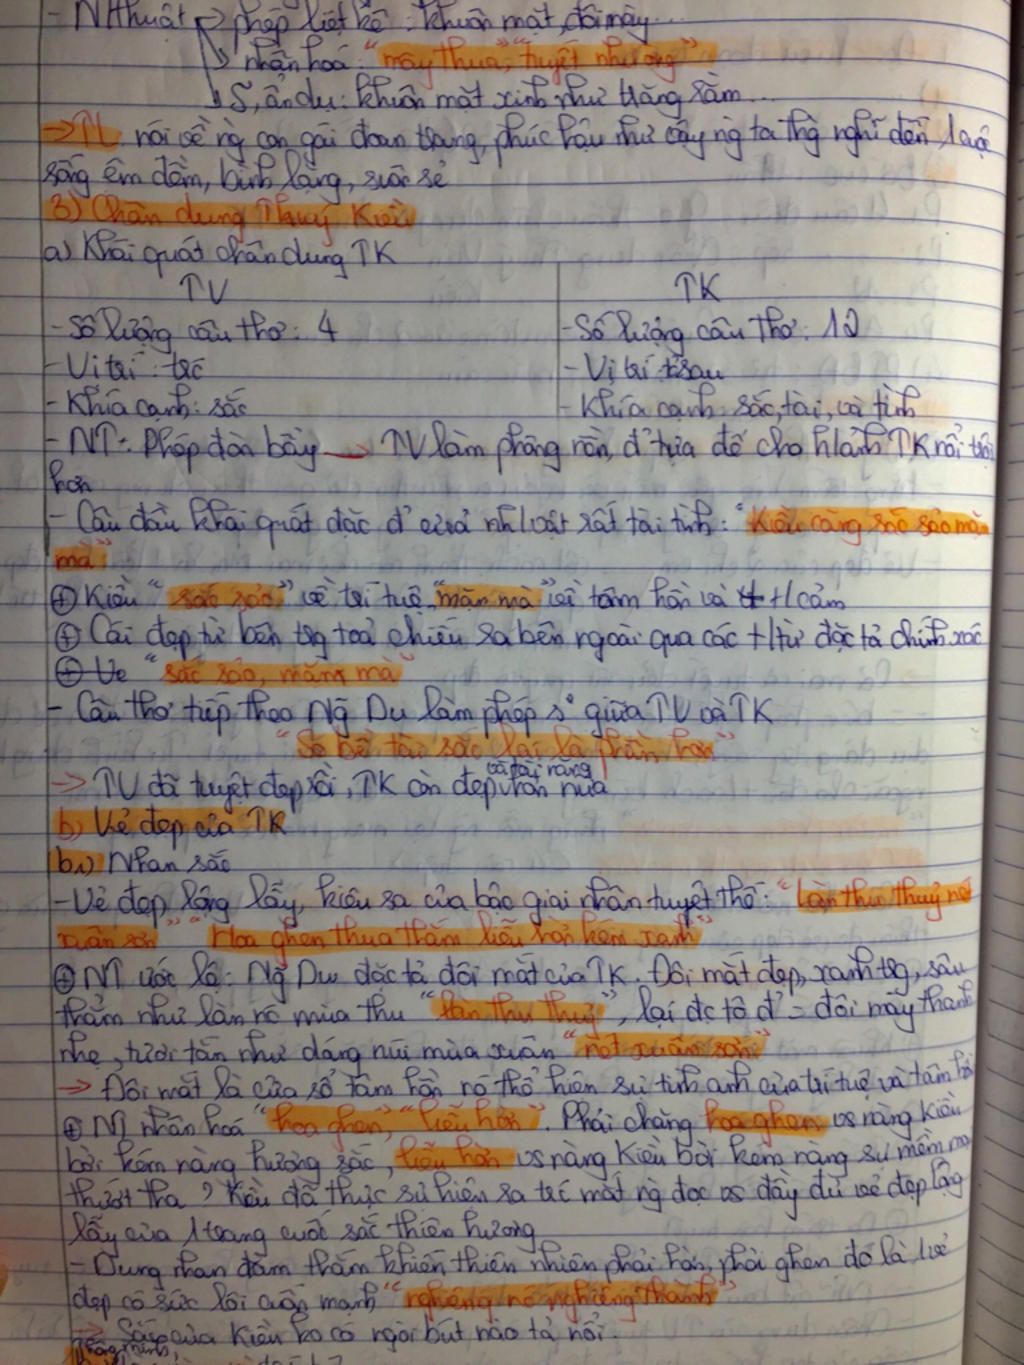 - NThuật → phép liệt kê: khuôn mặt, đôi mày...
nhân hoá: "mây thua", "tuyết nhường"
S, ẩn dụ: khuôn mặt xinh như trăng rằm...
→ TL nói về ng con gái đoan trang, phúc hậu như vậy ng ta thg nghĩ đến 1 cuộc
sống êm đềm, bình lặng, suôn sẻ
3) Chân dung Thuý Kiều
a) Khái quát chân dung TK
TV TK
- Số lượng câu thơ: 4 - Số lượng câu thơ: 12
- Vị trí: trc - Vị trí: sau
- Khía cạnh: sắc - Khía cạnh: sắc, tài, và tình
- NT: Phép đòn bẩy → TV làm phông nền, đ' tựa để cho h/ảnh TK nổi trội
hơn
- Câu đầu khái quát đặc đ' của nh/vật rất tài tình: "Kiều càng sắc sảo mặn
mà"
⊕ Kiều "sắc sảo" về trí tuệ, "mặn mà" về tâm hồn và t/cảm
⊕ Cái đẹp từ bên trg toả chiếu ra bên ngoài qua các t/từ đặc tả chính xác
⊕ Ve "sắc sảo, mặng mà"
- Câu thơ tiếp theo Ng Du làm phép s² giữa TV và TK
"So bề tài sắc lại là phần hơn"
→ TV đã tuyệt đẹp rồi, TK còn đẹp và tài năng hơn nữa
b) Vẻ đẹp của TK
b₁) Nhan sắc
- Vẻ đẹp lộng lẫy, kiêu sa của bậc giai nhân tuyệt thế: "Làn thu thuỷ nét
xuân sơn" "Hoa ghen thua thắm liễu hờn kém xanh"
⊕ NT ước lệ: Ng Du đặc tả đôi mắt của TK. Đôi mắt đẹp, xanh trg, sâu
thẳm như làn nc mùa thu "làn thu thuỷ", lại đc tô đ' = đôi mày thanh
nhẹ, tươi tắn như dáng núi mùa xuân "nét xuân sơn"
→ Đôi mắt là cửa sổ tâm hồn nó thể hiện sự tinh anh của trí tuệ và tâm hồn
⊕ NT nhân hoá "hoa ghen", "liễu hờn". Phải chăng hoa ghen vs nàng Kiều
bởi kém nàng hương sắc, liễu hờn vs nàng Kiều bởi kém nàng sự mềm mại
thướt tha? Kiều đã thực sự hiện ra trc mắt ng đọc vs đầy đủ vẻ đẹp lộng
lẫy của 1 trang quốc sắc thiên hương
- Dung nhan đằm thắm khiến thiên nhiên phải hờn, phải ghen đó là 1 vẻ
đẹp có sức lôi cuốn mạnh "nghiêng nc nghiêng thành"
→ Sắc của Kiều ko có ngòi bút nào tả nổi.